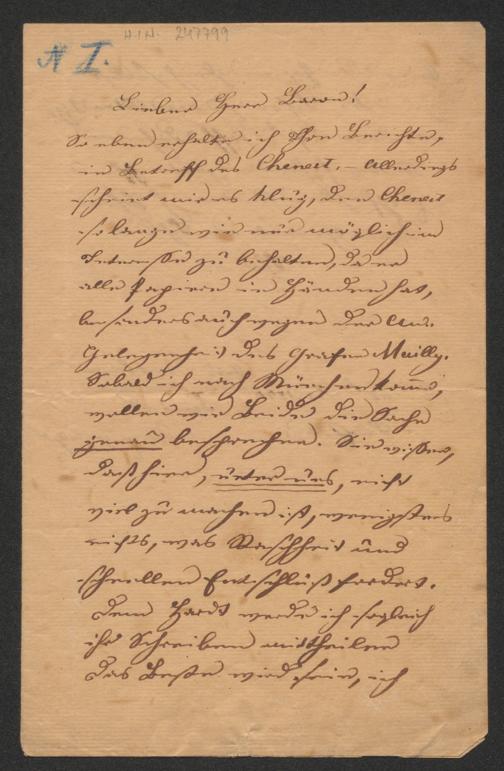 H.I.N. 247799
N I.
Lieber Herr Baron!
So eben erhalte ich Ihre Berichte,
in Betreff des Chenert. – Allerdings
scheint mir es klug, den Chenert
so lange wie nur möglich im
Interesse zu behalten, da er
alle Papiere in Händen hat,
besonders auch wegen der
Gelegenheit des Grafen Mailly.
Sobald ich nach München komme,
wollen wir Beide die Sache
genau besprechen. Sie wissen,
daß hier, unter uns, nicht
viel zu machen ist, wenigstens
nichts, was Raschheit und
schnellen Entschluß fordert.
Dem Hardt werde ich sogleich
ihr Schreiben mittheilen
das Beste wird sein, ich